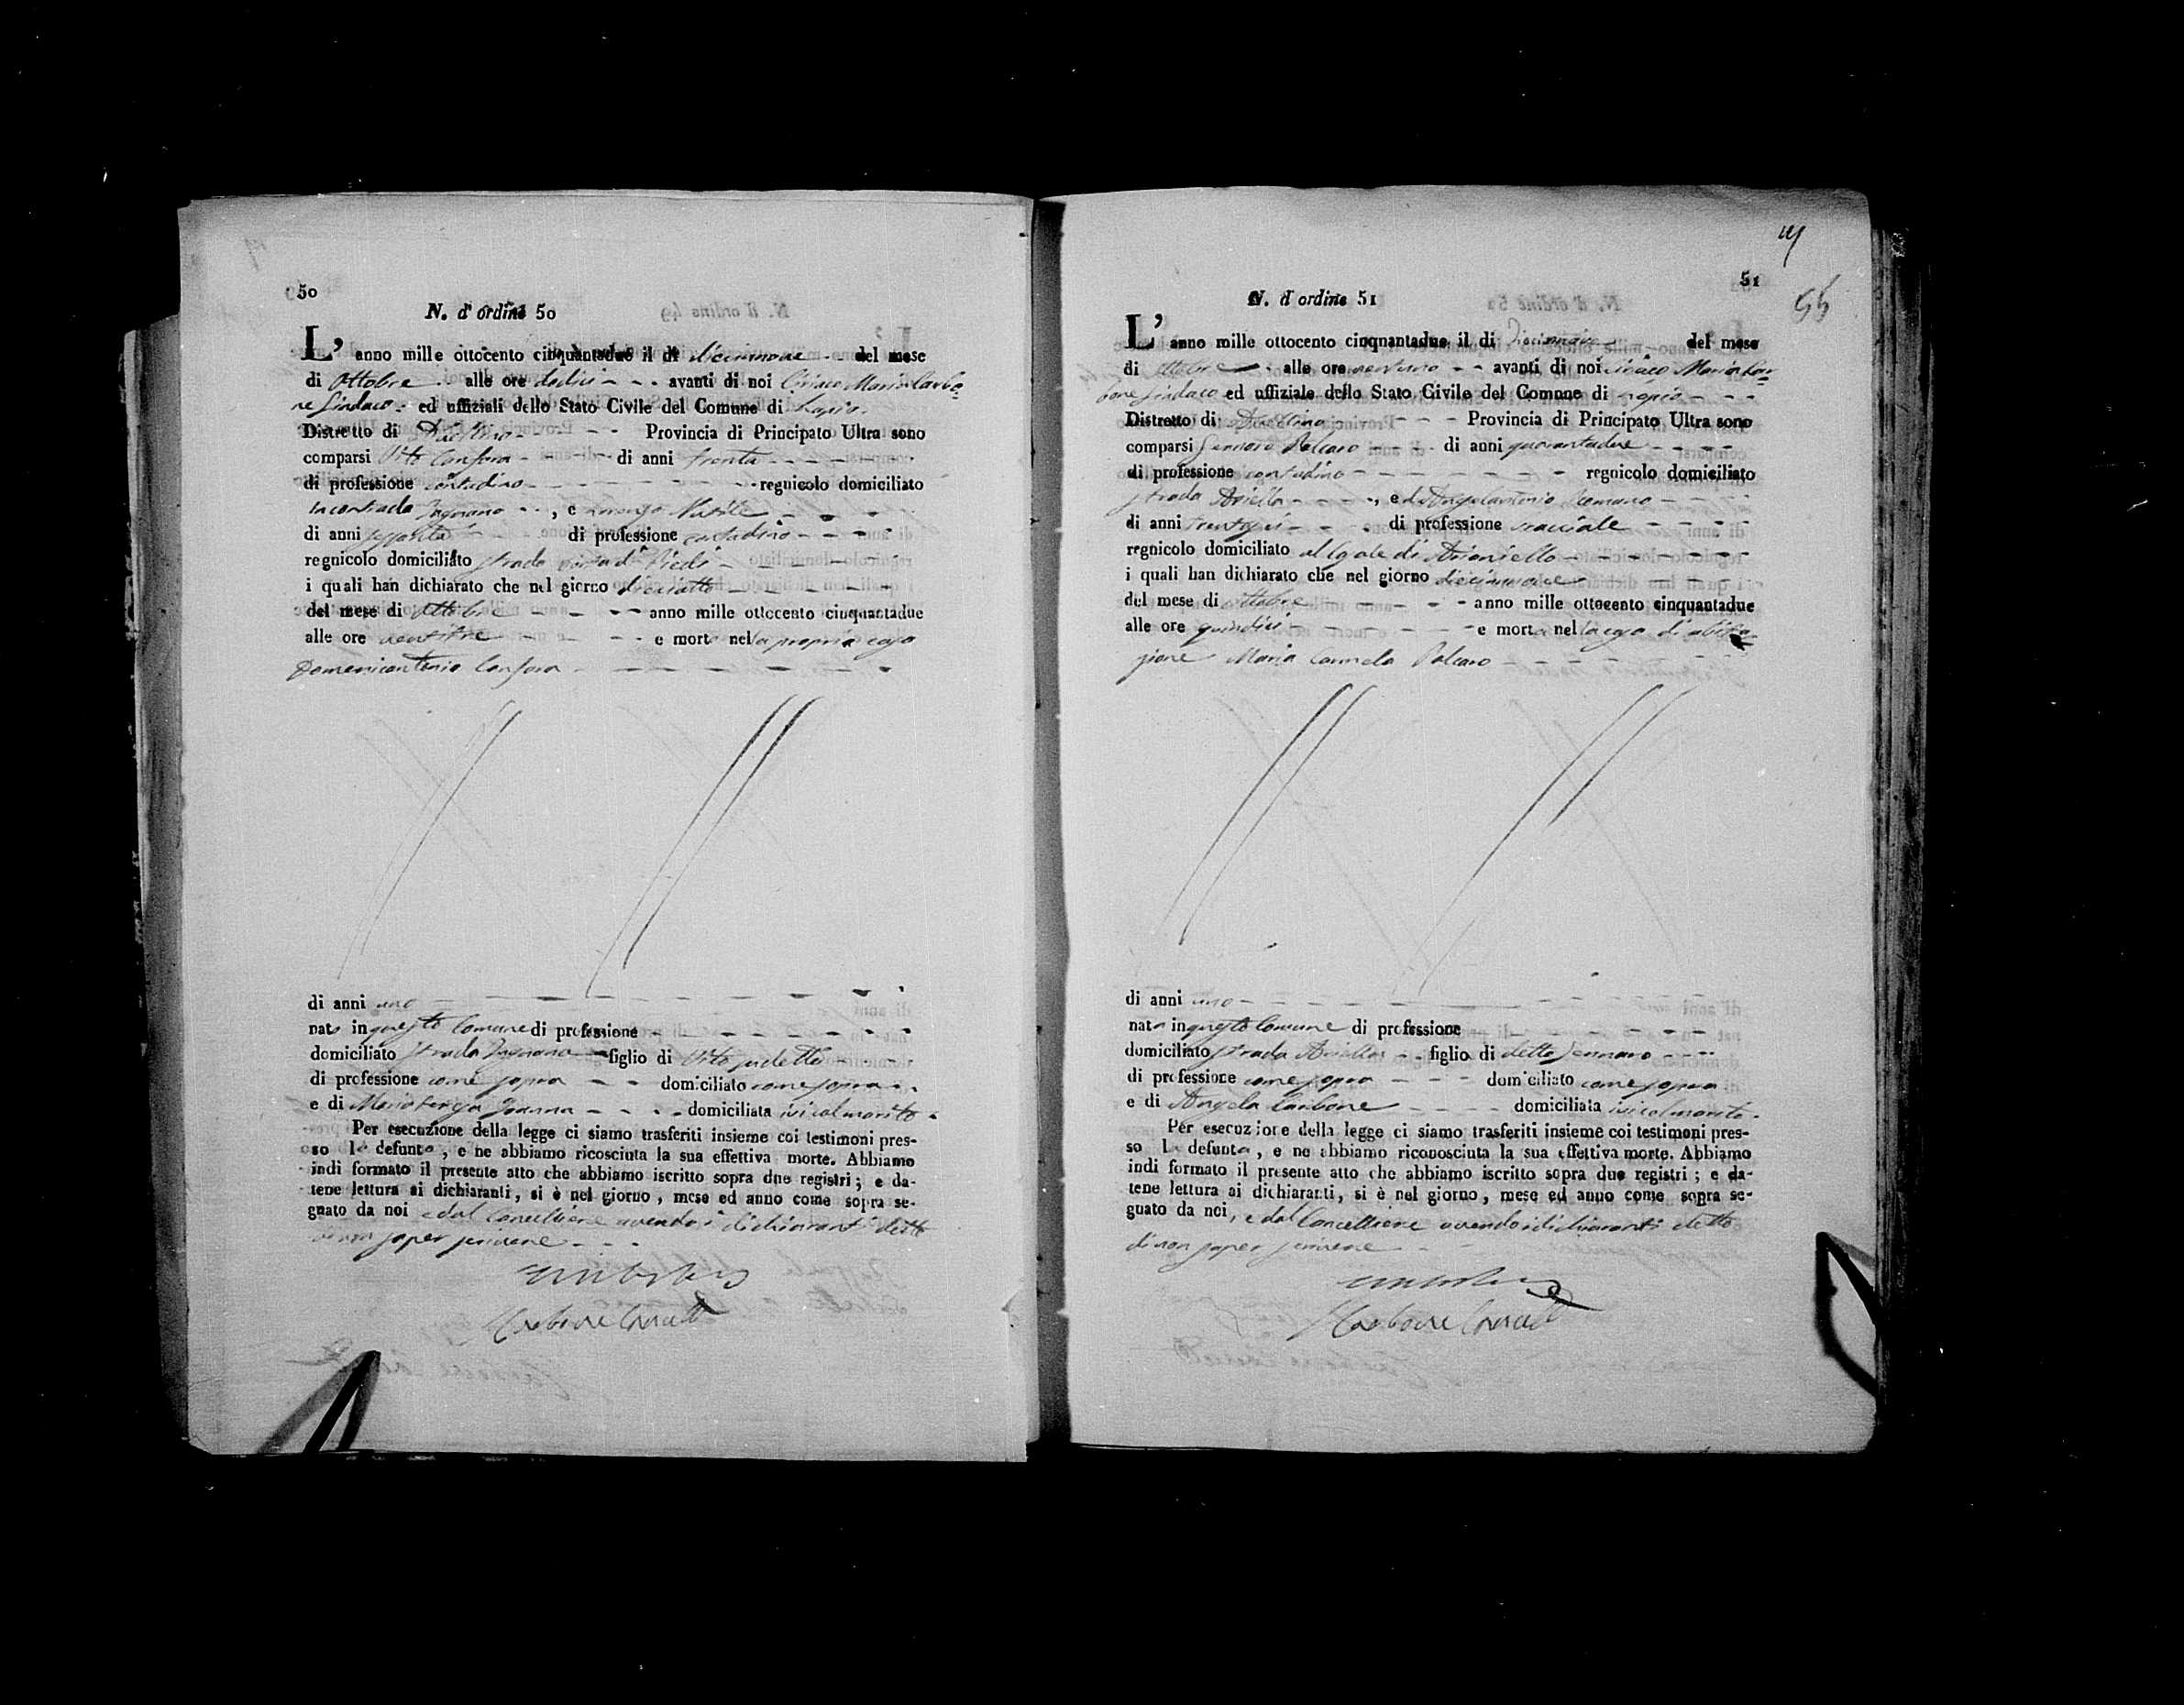 50
N. d' ordine 50
L' anno mille ottocento cinquantadue il di diecinnove del mese
di Ottobre alle ore dodici avanti di noi Ciriaco Maria Carbo=
ne Sindaco ed uffiziali dello Stato Civile del Comune di Lapio
Distretto di Avellino Provincia di Principato Ultra sono
comparsi Vito Confora di anni trenta
di professione contadino regnicolo domiciliato
in contrada , e Lorenzo
di anni sessanta di professione contadino
regnicolo domiciliato strada
i quali han dichiarato che nel giorno dieciotto
del mese di Ottobre anno mille ottocento cinquantadue
alle ore ventitre e morto nella propria casa
Domenicantonio Confora
di anni uno
nato in questo Comune di professione
domiciliato strada figlio di Vito sudetto
di professione come sopra domiciliato come sopra
e di Maria domiciliata ivi col marito
Per esecuzione della legge ci siamo trasferiti insieme coi testimoni pres-
so lo defunto, e ne abbiamo ricosciuta la sua effettiva morte. Abbiamo
indi formato il presente atto che abbiamo iscritto sopra due registri; e da-
tene lettura ai dichiaranti, si è nel giorno, mese ed anno come sopra se-
gnato da noi e dal Cancelliere avendo i dichiaranti detto
di non saper scrivere
Carbone
51
55
N. d' ordine 51
L' anno mille ottocento cinquantadue il di Diecinnove del mese
di Ottobre alle ore ventuno avanti di noi Ciriaco Maria Car=
bone Sindaco ed uffiziale dello Stato Civile del Comune di Lapio
Distretto di Avellino Provincia di Principato Ultra sono
comparsi Gennaro Polcaro di anni quarantadue
di professione contadino regnicolo domiciliato
strada Ariella , ed Angelantonio Romano
di anni trentasei di professione bracciale
regnicolo domiciliato al di Arianiello
i quali han dichiarato che nel giorno diecinnove
del mese di Ottobre anno mille ottocento cinquantadue
alle ore quindici e morta nella casa di abita=
zione Maria Carmela Polcaro
di anni uno
nata in questo Comune di professione
domiciliato strada Ariella figlia di detto Gennaro
di professione come sopra domiciliato come sopra
e di Angela Carbone domiciliata ivi col marito
Per esecuzione della legge ci siamo trasferiti insieme coi testimoni pres-
so la defunta, e ne abbiamo riconosciuta la sua effettiva morte. Abbiamo
indi formato il presente atto che abbiamo iscritto sopra due registri; e da-
tene lettura ai dichiaranti, si è nel giorno, mese ed anno come sopra se-
gnato da noi, e dal Cancelliere avendo i dichiaranti detto
di non saper scrivere
Carbone